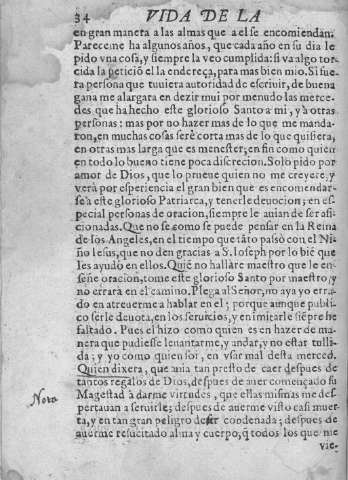 34 VIDA DE LA
en gran manera a las almas que a el se encomiendan.
Pareceme ha algunos años, que cada año en su dia le
pido vna cosa, y siempre la veo cumplida: si va algo tor-
cida la peticiõ el la endereça, para mas bien mio. Si fue
ra persona que tuuiera autoridad de escriuir, de buena
gana me alargara en dezir mui por menudo las merce-
des que ha hecho este glorioso Santo a mi, y à otras
personas: mas por no hazer mas de lo que me manda-
ron, en muchas cosas serè corta mas de lo que quisiera,
en otras mas larga que es menester; en fin como quien
en todo lo bueno tiene poca discrecion. Solo pido por
amor de Dios, que lo prueue quien no me creyere, y
verà por esperiencia el gran bien que es encomendar-
se à este glorioso Patriarca, y tenerle deuocion; en es-
pecial personas de oracion, siempre le auian de ser afi-
cionadas. Que no se como se puede pensar en la Reina
de los Angeles, en el tiempo que tãto passò con el Ni-
ño Iesus, que no den gracias a S. Ioseph por lo biẽ que
les ayudò en ellos. Quiẽ no hallare maestro que le en-
señe oracion, tome este glorioso Santo por maestro, y
no errarà en el camino. Plega al Señor, no aya yo erra-
do en atreuerme a hablar en el; porque aunque publi-
co serle deuota, en los seruicios, y en imitarle siẽpre he
faltado. Pues el hizo como quien es en hazer de ma-
nera que pudiesse leuantarme, y andar, y no estar tulli-
da; y yo como quien soi, en vsar mal desta merced.
Quien dixera, que auia tan presto de caer despues de
tantos regalos de Dios, despues de auer començado su
Nota
Magestad à darme virtudes, que ellas mismas me des-
pertauan a seruirle; despues de auerme visto casi muer-
ta, y en tan gran peligro de ser condenada; despues de
auerme resucitado alma y cuerpo, q̃ todos los que me
vie-